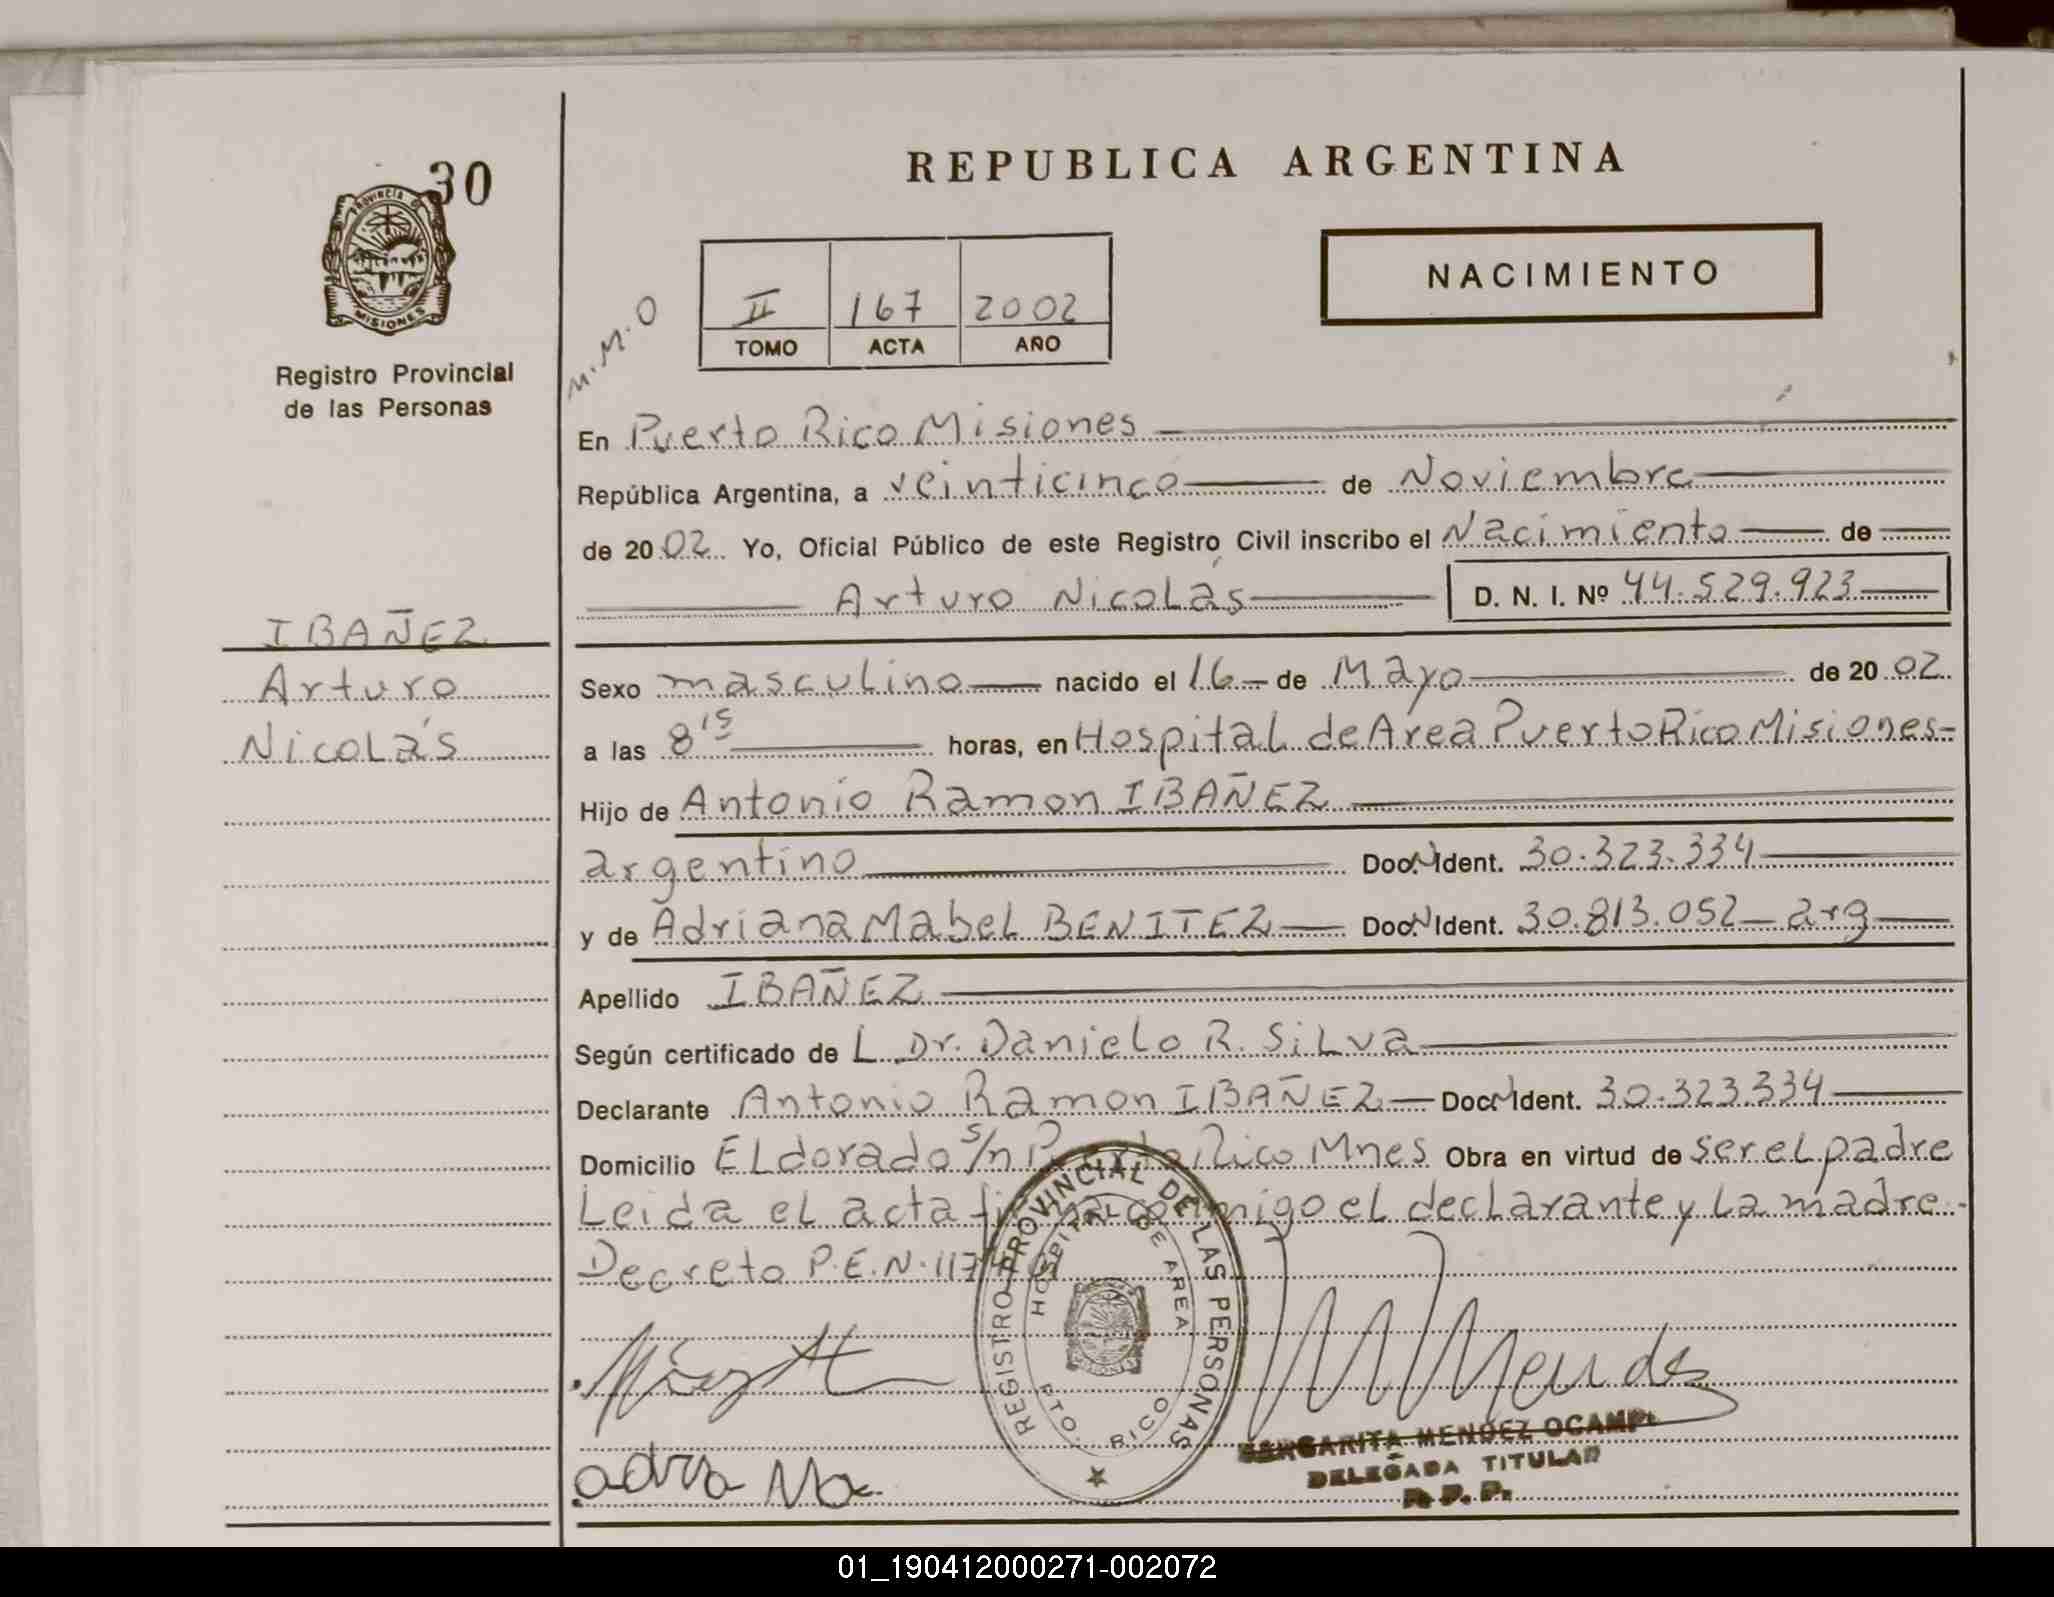 30
PROVINCIA DE
MISIONES
Registro Provincial
de las Personas
IBAÑEZ
Arturo
Nicolás
REPUBLICA ARGENTINA
NACIMIENTO
M.M.O
II 167 2002
TOMO ACTA AÑO
En Puerto Rico Misiones
República Argentina, a veinticinco de Noviembre
de 2002 Yo, Oficial Público de este Registro Civil inscribo el Nacimiento de
Arturo Nicolás D. N. I. Nº 44.529.923
Sexo masculino nacido el 16 de Mayo de 2002
a las 8 15 horas, en Hospital de Area Puerto Rico Misiones
Hijo de Antonio Ramon IBAÑEZ
argentino Doc. N Ident. 30.323.334
y de Adriana Mabel BENITEZ Doc. N Ident. 30.813.052 arg
Apellido IBAÑEZ
Según certificado de L Dr. Danielo R. Silva
Declarante Antonio Ramon IBAÑEZ Doc. N Ident. 30.323.334
Domicilio Eldorado s/n Puerto Rico Mnes Obra en virtud de ser el padre
Leida el acta firma conmigo el declarante y la madre.
Decreto P.E.N.
REGISTRO PROVINCIAL DE LAS PERSONAS
HOSPITAL DE AREA
PTO. RICO
MISIONES
M Mendez
MARGARITA MENDEZ OCAMPO
DELEGADA TITULAR
R. P. P.
01_190412000271-002072